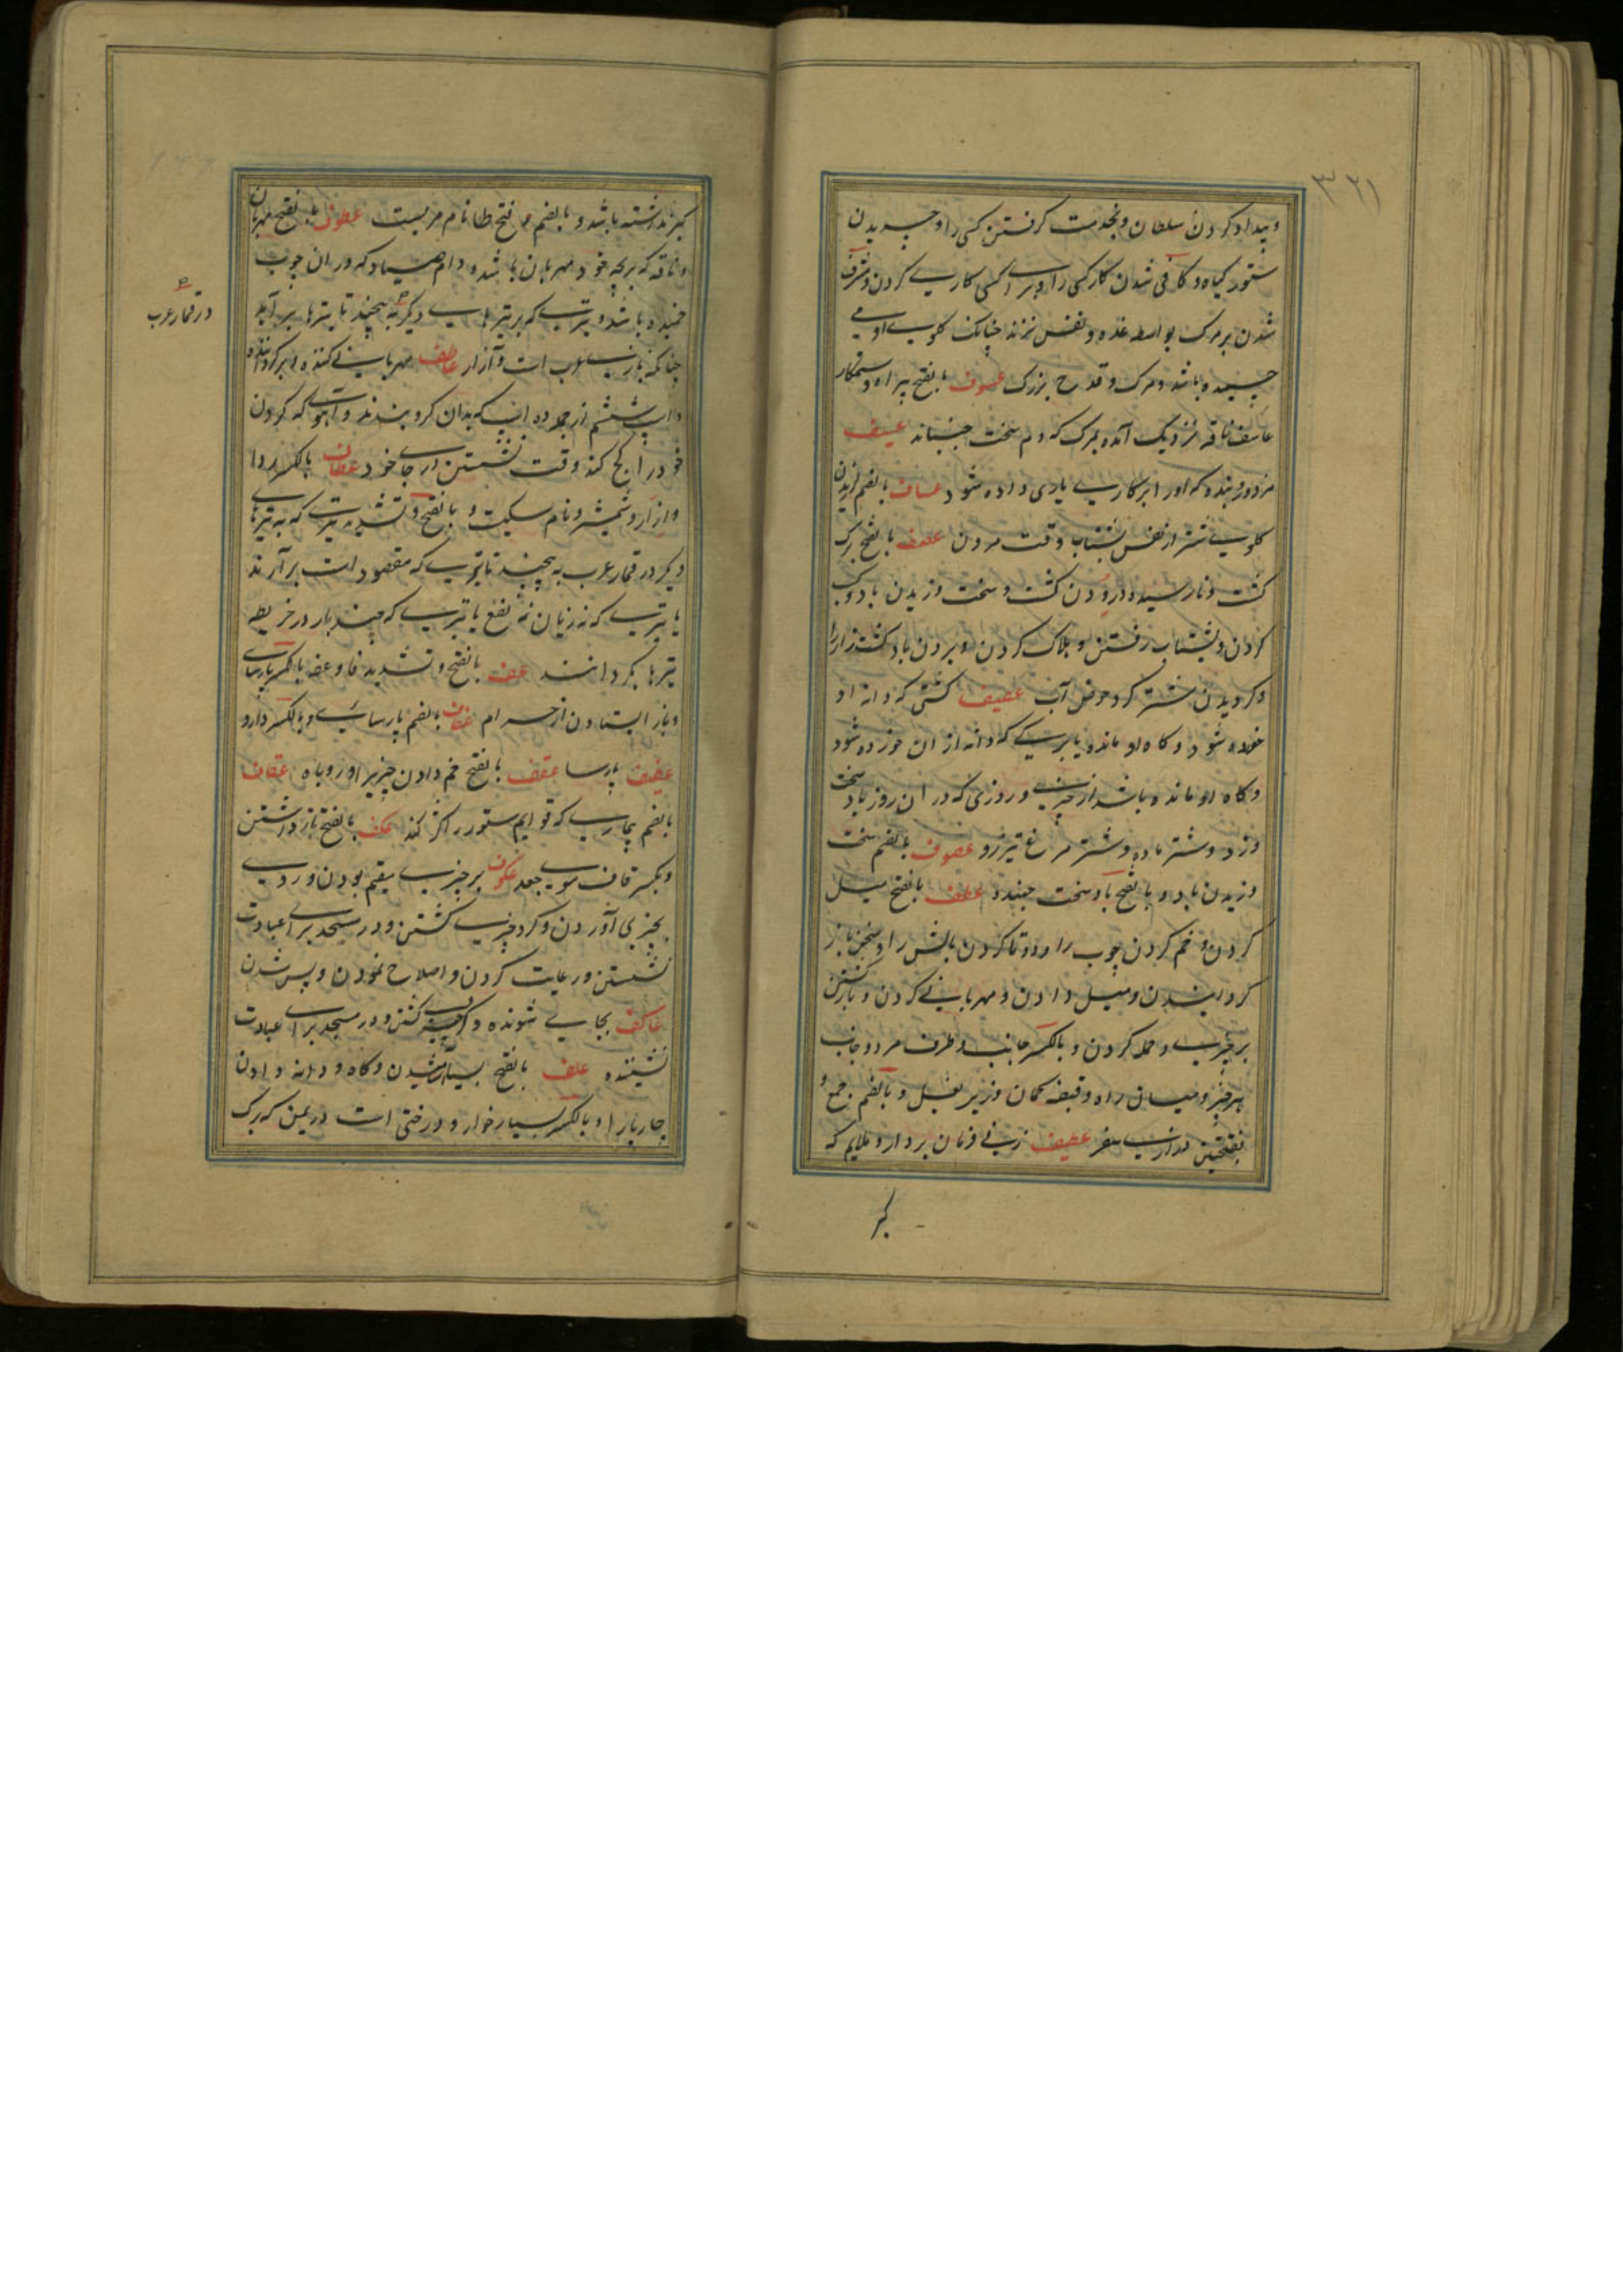 ۳۲۱
و بیداد کردن سلطان و بخدمت گرفتن کسی را و چریدن
ستور گیاه و کافی شدن کار کسی را و برای کسی کاری کردن و مشرف
شدن بر مرگ بواسطه غده و نفس زدن چنانکه گلوی او می
جنبیده باشد و مرگ و قدح بزرگ عسوف بالفتح بیراه و ستمکار
عاسف ناقه نزدیک آمده بمرگ که دم سخت جنباند عسیف
مزدور و بنده که او را بر کاری یاری داده شود عساف بالضم لرزیدن
گلوی شتر از نفس بشتاب وقت مردن عصف بالفتح برگ
کشت و نارسیده درودن کشت و سخت وزیدن باد و کسب
کردن و بشتاب رفتن و هلاک کردن و بردن باد کشت زار را
و گردیدن شتر گرد حوض آب عصیف کشتی که دانه او
خورده شود و کاه او مانده یا برگی که دانه از آن خورده شود
و کاه او مانده باشد از چیزی و روزی که در آن روز باد سخت
وزد و شتر ماده و شتر مرغ تیزرو عصوف بالضم سخت
وزیدن باد و بالفتح باد سخت جهنده عطف بالفتح میل
کردن و خم کردن چوب را و دوتا کردن بالش را و سخن باز
گردانیدن و میل دادن و مهربانی کردن و بازگشتن
بر چیزی و حمله کردن و بالکسر جانب و طرف مرد و جانب
هر چیز و میان راه و قبضه کمان و زیر بغل و بالضم جمع و
بفتحتین درازی مژه عطیف زنی فرمان بردار و ملایم که
کبر
کبر نداشته باشد و بالضم و فتح طا نام مردیست عطوف بالفتح مهربان
و ناقه که بر بچه خود مهربان باشد و دام صیاد که در آن چوب
خمیده باشد و تیری که بر تیرهای دیگر به پیچند تا تیرها برآید
در قمار عرب
چنانکه بازی عرب است و آزار عاطف مهربانی کننده و برگرداننده
و اسپ ششم از جمله ده اسپ که بدان گرو بندند و آهوی که گردن
خود را کج کند وقت نشستن از جای خود عطاف بالکسر ردا
و ازار و شمشیر و نام سگیست و بالفتح و تشدید تیری که به تیرهای
دیگر در قمار عرب به پیچند تا تیری که مقصود است برآرند
یا تیری که نه زیان نه نفع یا تیری که چند بار در خریطه
تیرها بگردانند عف بالفتح و تشدید فا و عفه بالکسر پارسای
و باز ایستادن از حرام عفاف بالضم پارسائی و بالکسر دارو
عفیف پارسا عقف بالفتح خم دادن چیزی را و روباه عقاف
بالضم بیماری که قوایم ستور را کژ کند عکف بالفتح بازداشتن
و بکسر کاف موی جعد عکوف بر چیزی مقیم بودن و روی
بچیزی آوردن و گرد چیزی گشتن و در مسجد برای عبادت
نشستن و رعایت کردن و اصلاح نمودن و پس شدن
عاکف بجایی شونده و گرد چیزی گشتن و در مسجد برای عبادت
نشیننده علف بالفتح بسیار آشامیدن و کاه و دانه دادن
چارپا را و بالکسر بسیار خوار و درختی است در یمن که برگ